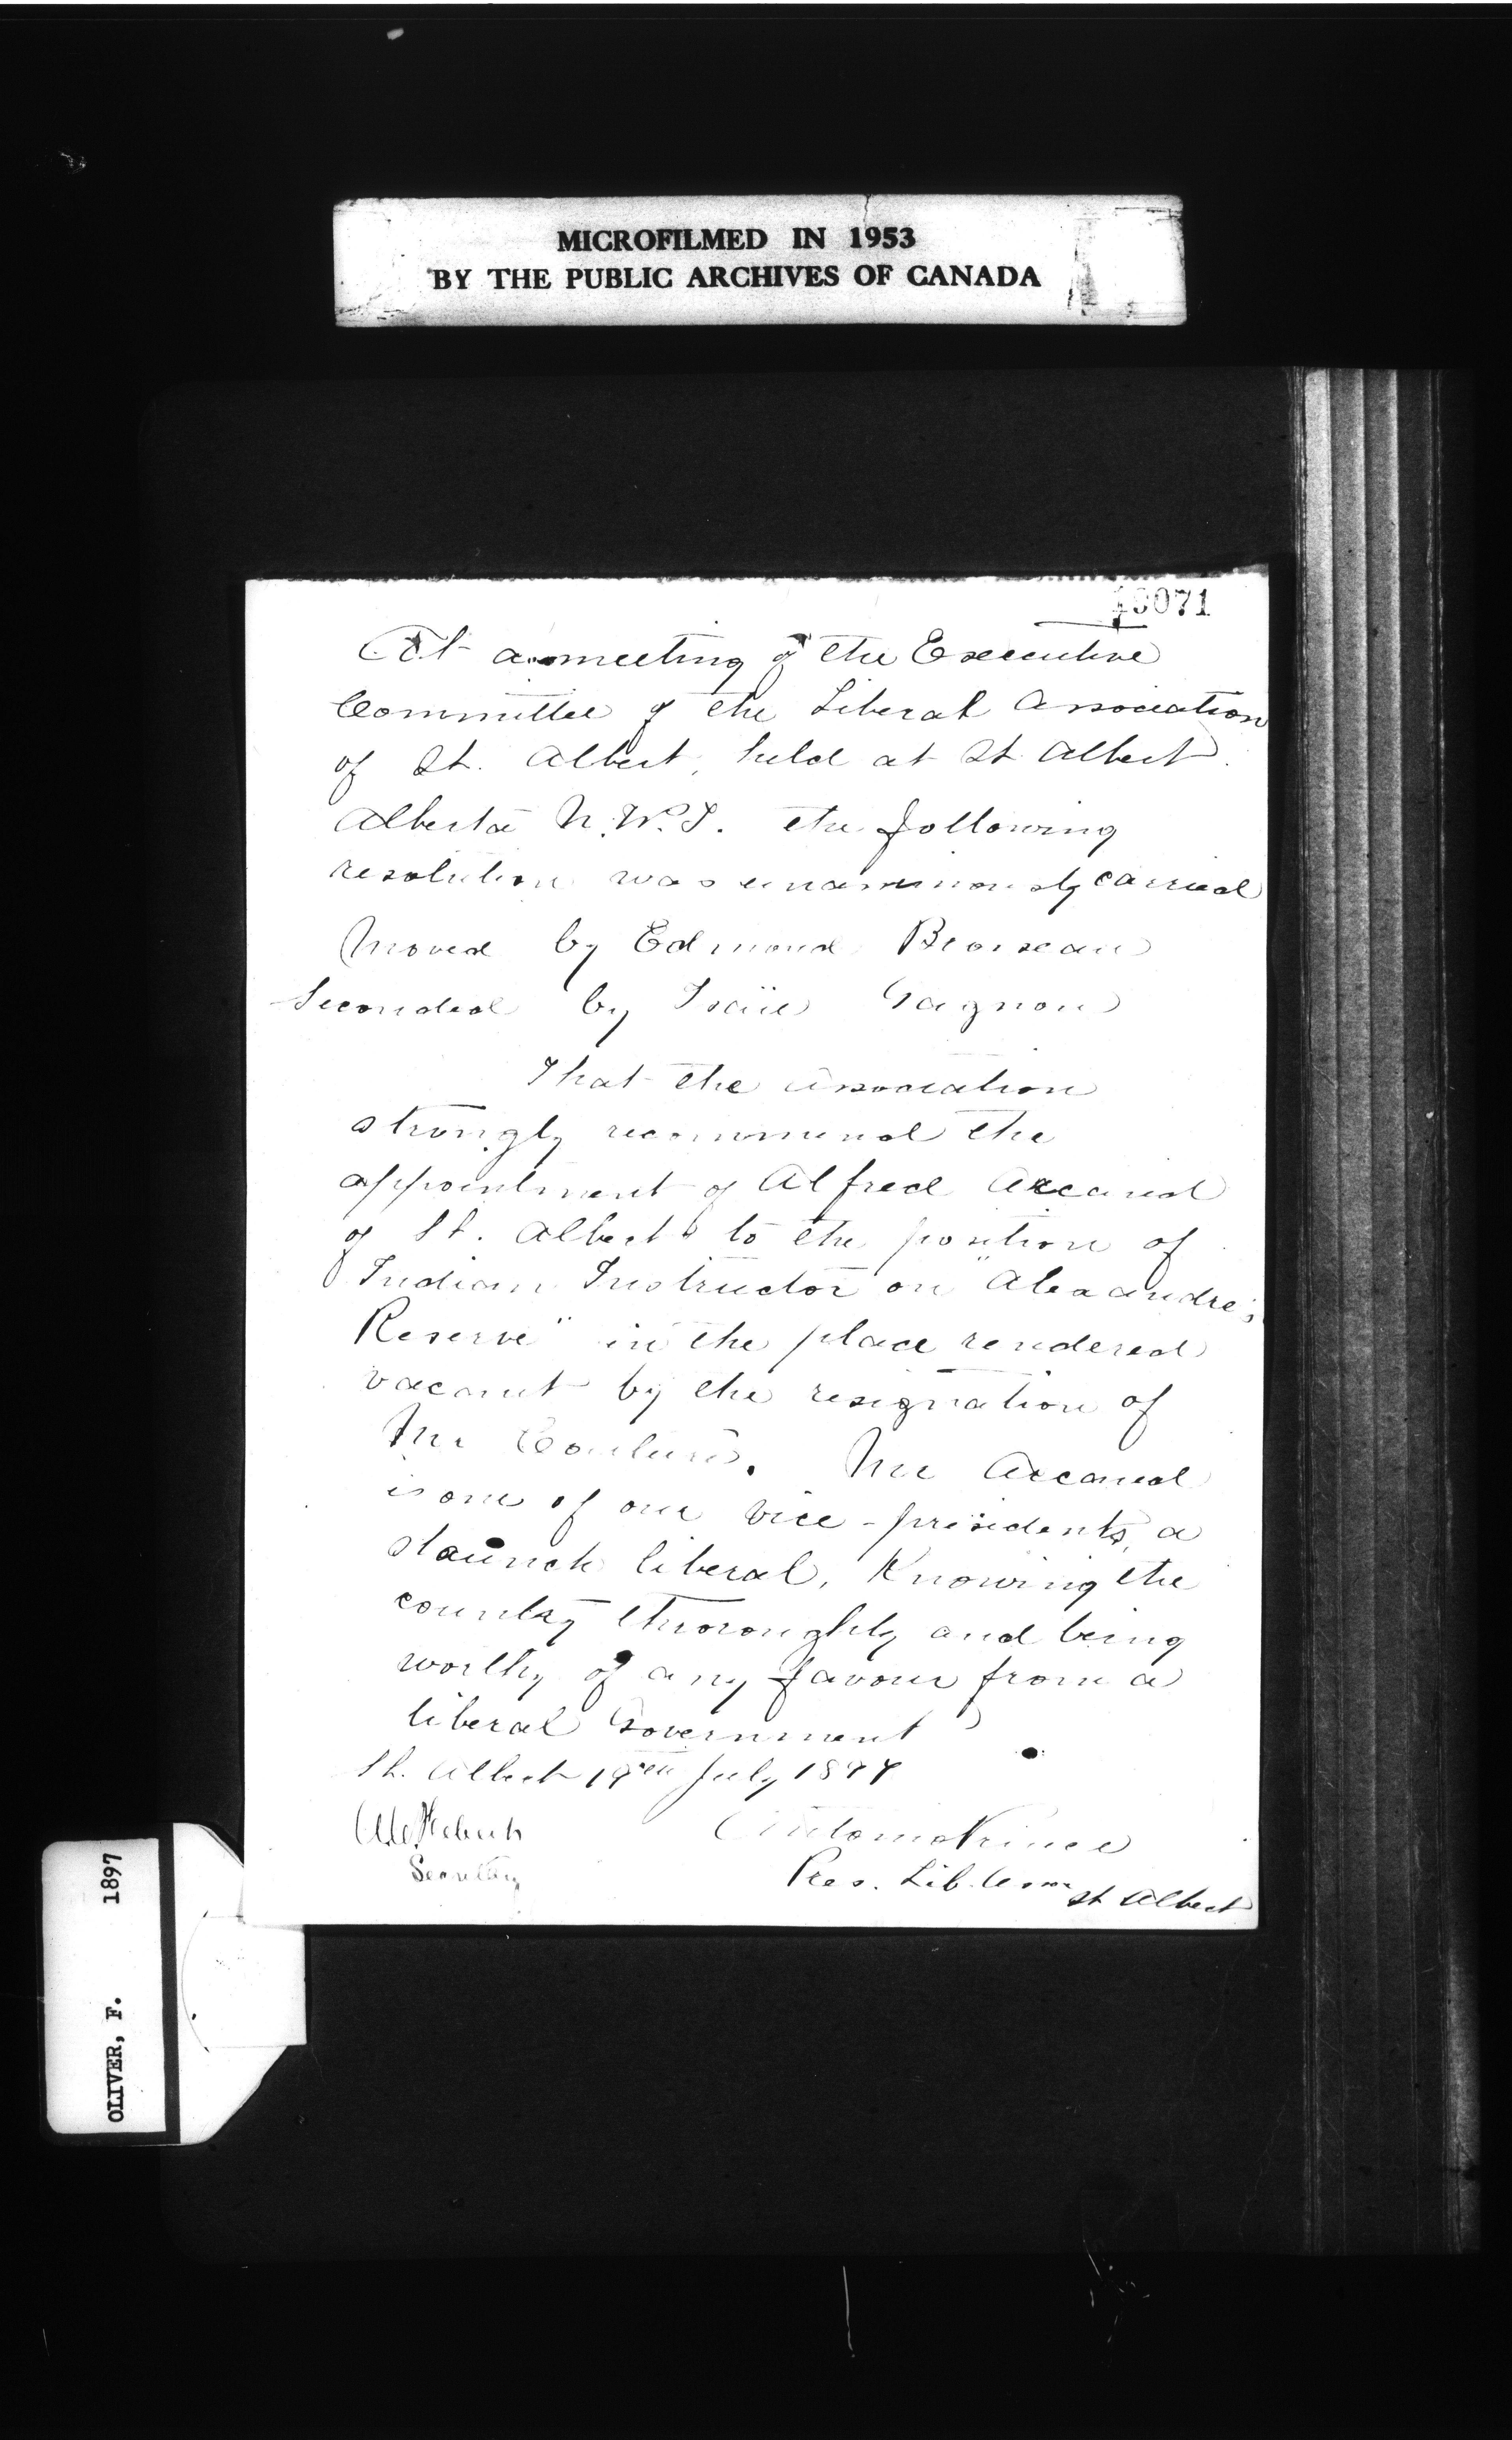 MICROFILMED IN 1953
BY THE PUBLIC ARCHIVES OF CANADA
At a meeting of the Executive
Committee of the Liberal Association
of St. Albert, held at St Albert
Alberta N.W.T. the following
resolution was unanimously carried
Moved by Edmond Brosseau
Seconded by Isaïe Gagnon
That the Association
strongly recommend the
appointment of Alfred Arcand
of St. Albert to the position of
Indian Instructor on "Alexandre's
Reserve" in the place rendered
vacant by the resignation of
Mr Couture. Mr Arcand
is one of our vice-presidents, a
staunch liberal, Knowing the
country thoroughly and being
worthy of any favour from a
liberal Government
St. Albert 19th July 1897
Secretary
Antonio Prince
Pres. Lib. Assn St Albert
OLIVER, F. 1897